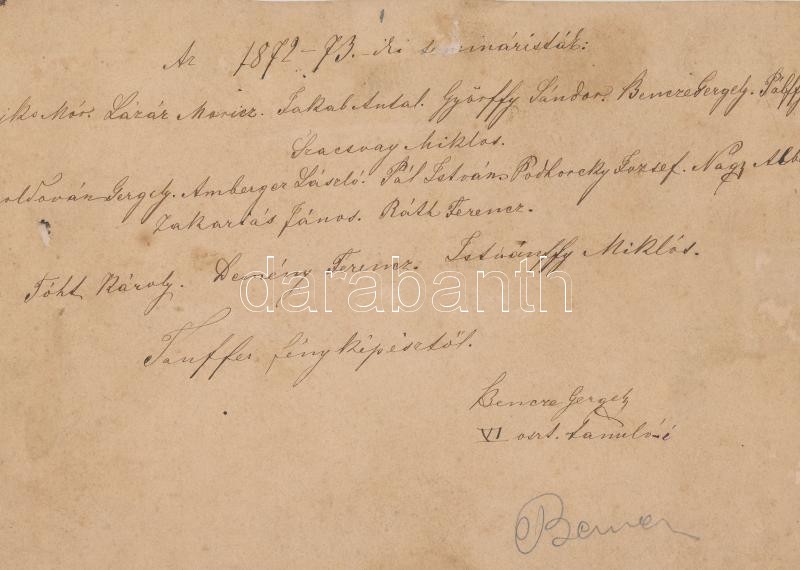 Az 1872-73.-iki seminaristák:
Mór. Lázár Moricz. Jakab Antal. Györffy Sándor. Bencze Gergely. Pálffy
Szacsvay Miklos.
oldován Gergely. Amberger László. Pál István. Podhorcky Jozsef. Nagy Albe
Zakariás János. Ráth Ferencz.
Tóht Károly. Demény Ferencz. Istvánffy Miklós.
darabanth
Tauffer fényképésztől.
Bencze Gergely
VI oszt. tanuló-é